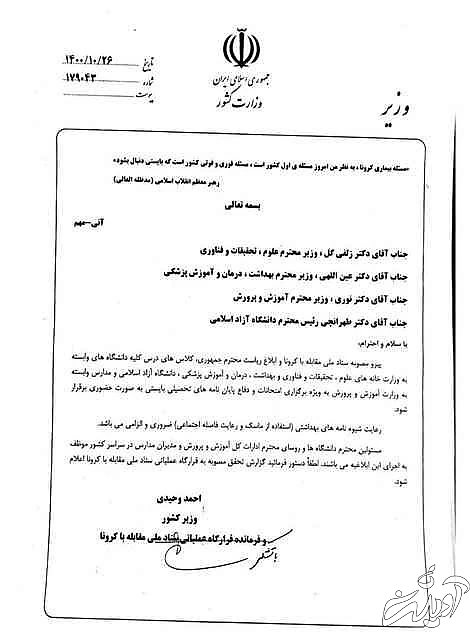 جمهوری اسلامی ایران
وزارت کشور
وزیر
تاریخ ۱۴۰۰/۱۰/۲۶
شماره ۱۷۹۰۴۳
پیوست
«مسئله بیماری کرونا، به نظر من امروز مسئله ی اول کشور است، مسئله فوری و فوتی کشور است که بایستی دنبال بشود»
رهبر معظم انقلاب اسلامی (مدظله العالی)
بسمه تعالی
آنی-مهم
جناب آقای دکتر زلفی گل، وزیر محترم علوم، تحقیقات و فناوری
جناب آقای دکتر عین اللهی، وزیر محترم بهداشت، درمان و آموزش پزشکی
جناب آقای دکتر نوری، وزیر محترم آموزش و پرورش
جناب آقای دکتر طهرانچی رئیس محترم دانشگاه آزاد اسلامی
با سلام و احترام،
پیرو مصوبه ستاد ملی مقابله با کرونا و ابلاغ ریاست محترم جمهوری، کلاس های درس کلیه دانشگاه های وابسته
به وزارت خانه های علوم، تحقیقات و فناوری و بهداشت، درمان و آموزش پزشکی، دانشگاه آزاد اسلامی و مدارس وابسته
به وزارت آموزش و پرورش به ویژه برگزاری امتحانات و دفاع پایان نامه های تحصیلی بایستی به صورت حضوری برقرار
شود.
رعایت شیوه نامه های بهداشتی (استفاده از ماسک و رعایت فاصله اجتماعی) ضروری و الزامی می باشد.
مسئولین محترم دانشگاه ها و روسای محترم ادارات کل آموزش و پرورش و مدیران مدارس در سراسر کشور موظف
به اجرای این ابلاغیه می باشند. لطفاً دستور فرمائید گزارش تحقق مصوبه به قرارگاه عملیاتی ستاد ملی مقابله با کرونا اعلام
شود.
احمد وحیدی
وزیر کشور
و فرمانده قرارگاه عملیاتی ستاد ملی مقابله با کرونا
با تشکر